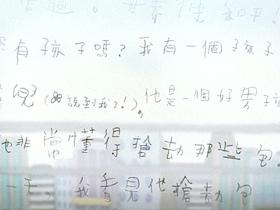 有孩子嗎？我有一個孩子
兒 說到我了!)，他是一個好男孩
他非常懂得搶劫那些包
一天，我看見他搶劫包